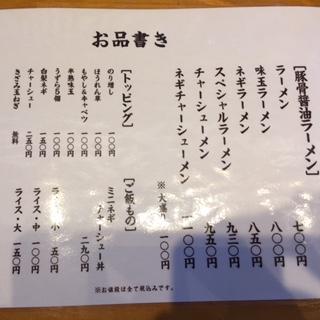 お品書き
[豚骨醤油ラーメン]
ラーメン 七〇〇円
味玉ラーメン 八〇〇円
ネギラーメン 八五〇円
スペシャルラーメン 九三〇円
チャーシューメン 九五〇円
ネギチャーシューメン 一一〇〇円
※大盛り 一〇〇円
[トッピング]
のり増し 一〇〇円
ほうれん草 一〇〇円
もやし&キャベツ 一〇〇円
半熟味玉 一〇〇円
うずら5個 一〇〇円
白髪ネギ 一五〇円
チャーシュー 二五〇円
きざみ玉ねぎ 無料
[ご飯もの]
ミニネギ
チャーシュー丼 二九〇円
小 五〇円
ライス・中 一〇〇円
ライス・大 一五〇円
※お値段は全て税込みです。